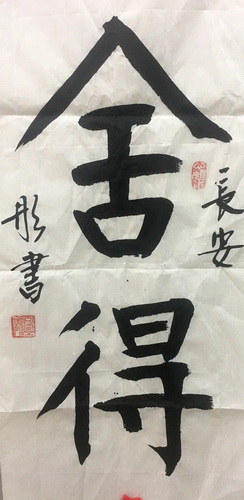 長安
舍得
彤書